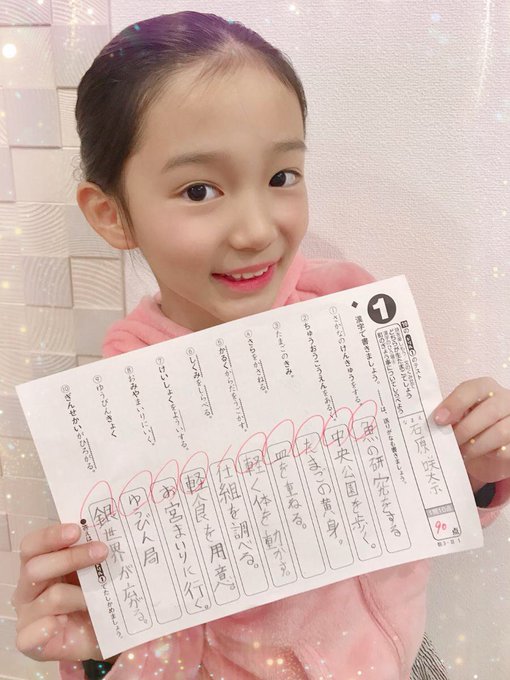 なまえ 石原
90点
1
漢字で書きましょう。
は、送りがなも書きましょう。
①さかなのけんきゅうをする。
②ちゅうおうこうえんをあるく。
③たまごのきみ。
④さらをかさねる。
⑤かるくからだをうごかす。
⑥しくみをしらべる。
⑦けいしょくをよういする。
⑧おみやまいりにいく。
⑨ゆうびんきょく
⑩ぎんせかいがひろがる。
魚の研究をする
中央公園を歩く。
たまごの黄身。
皿を重ねる。
軽く体を動かす。
仕組を調べる。
軽食を用意。
お宮まいりに行く。
ゆびん局
銀世界が広がる。
でたしかめましょう。